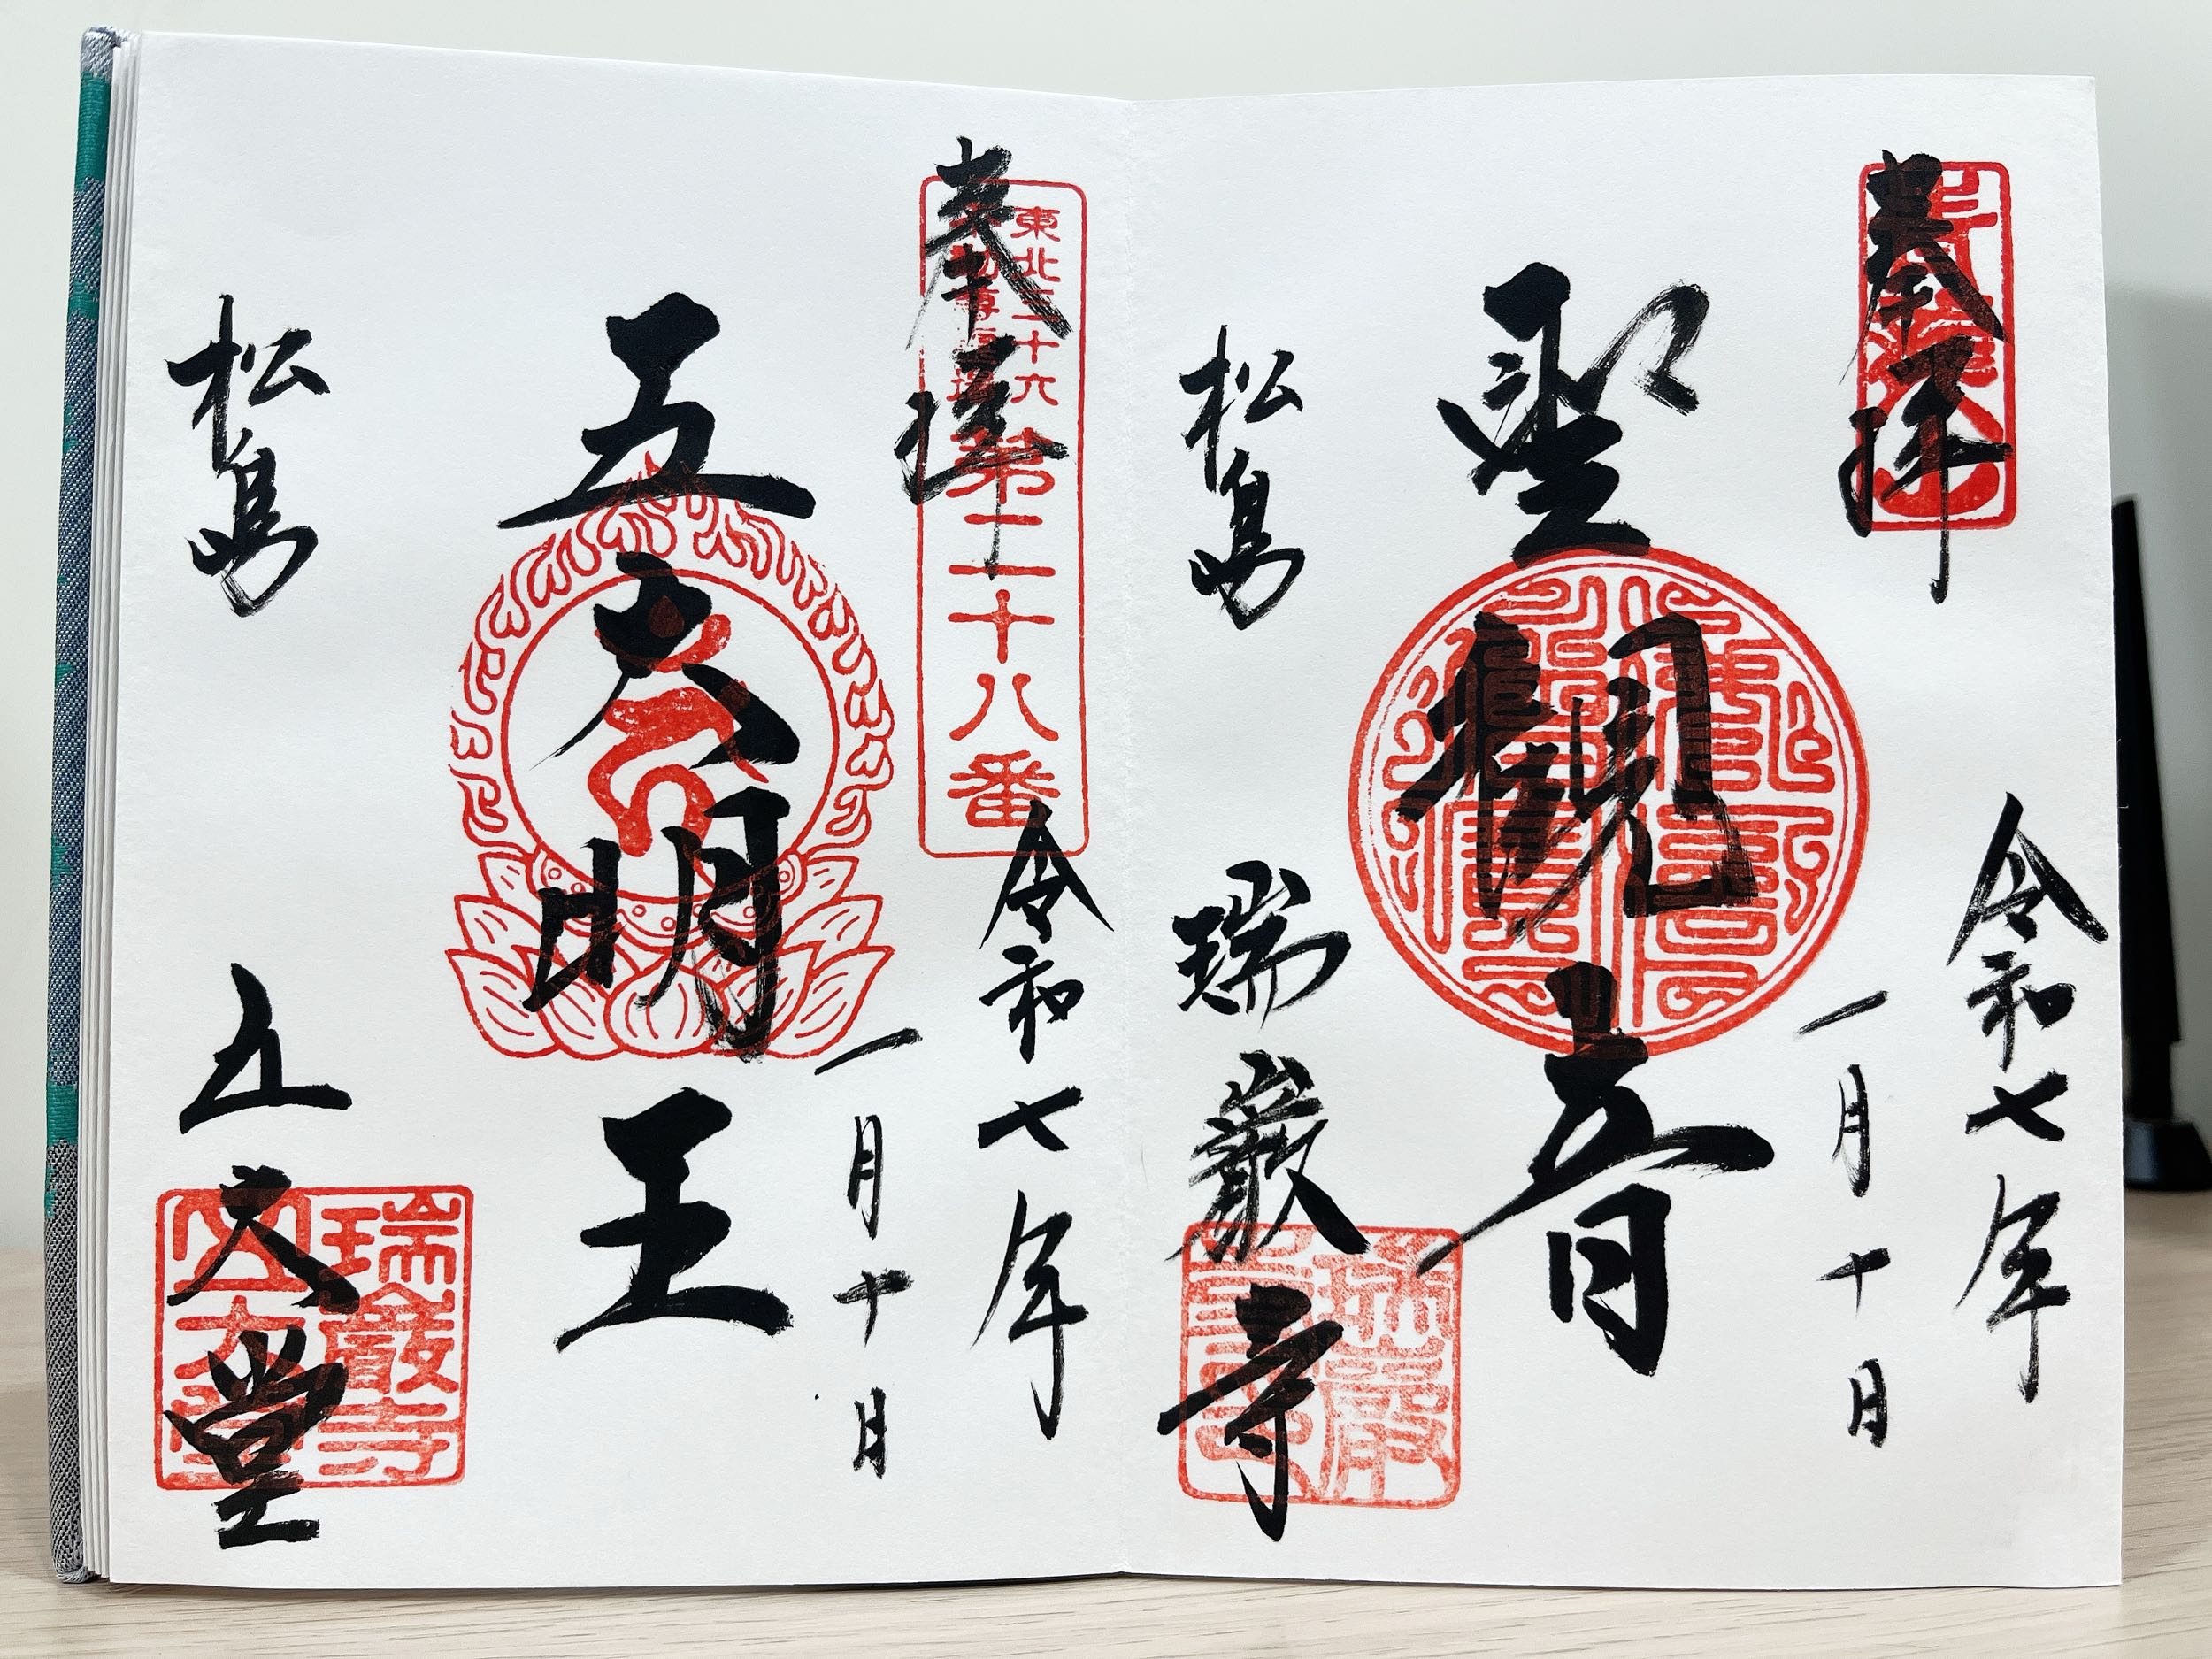 奉拝
令和七年
一月十日
聖観音
松島
瑞巌寺
奉拝
東北三十六
第二十八番
令和七年
一月十日
五大明王
松島
五大堂
瑞巌寺
五大堂